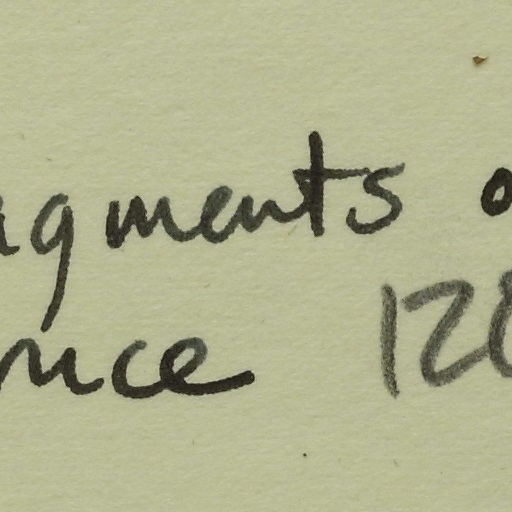 agments o
nuce 120